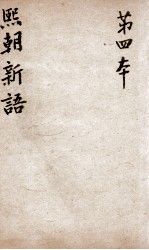 第四本
熙朝新語